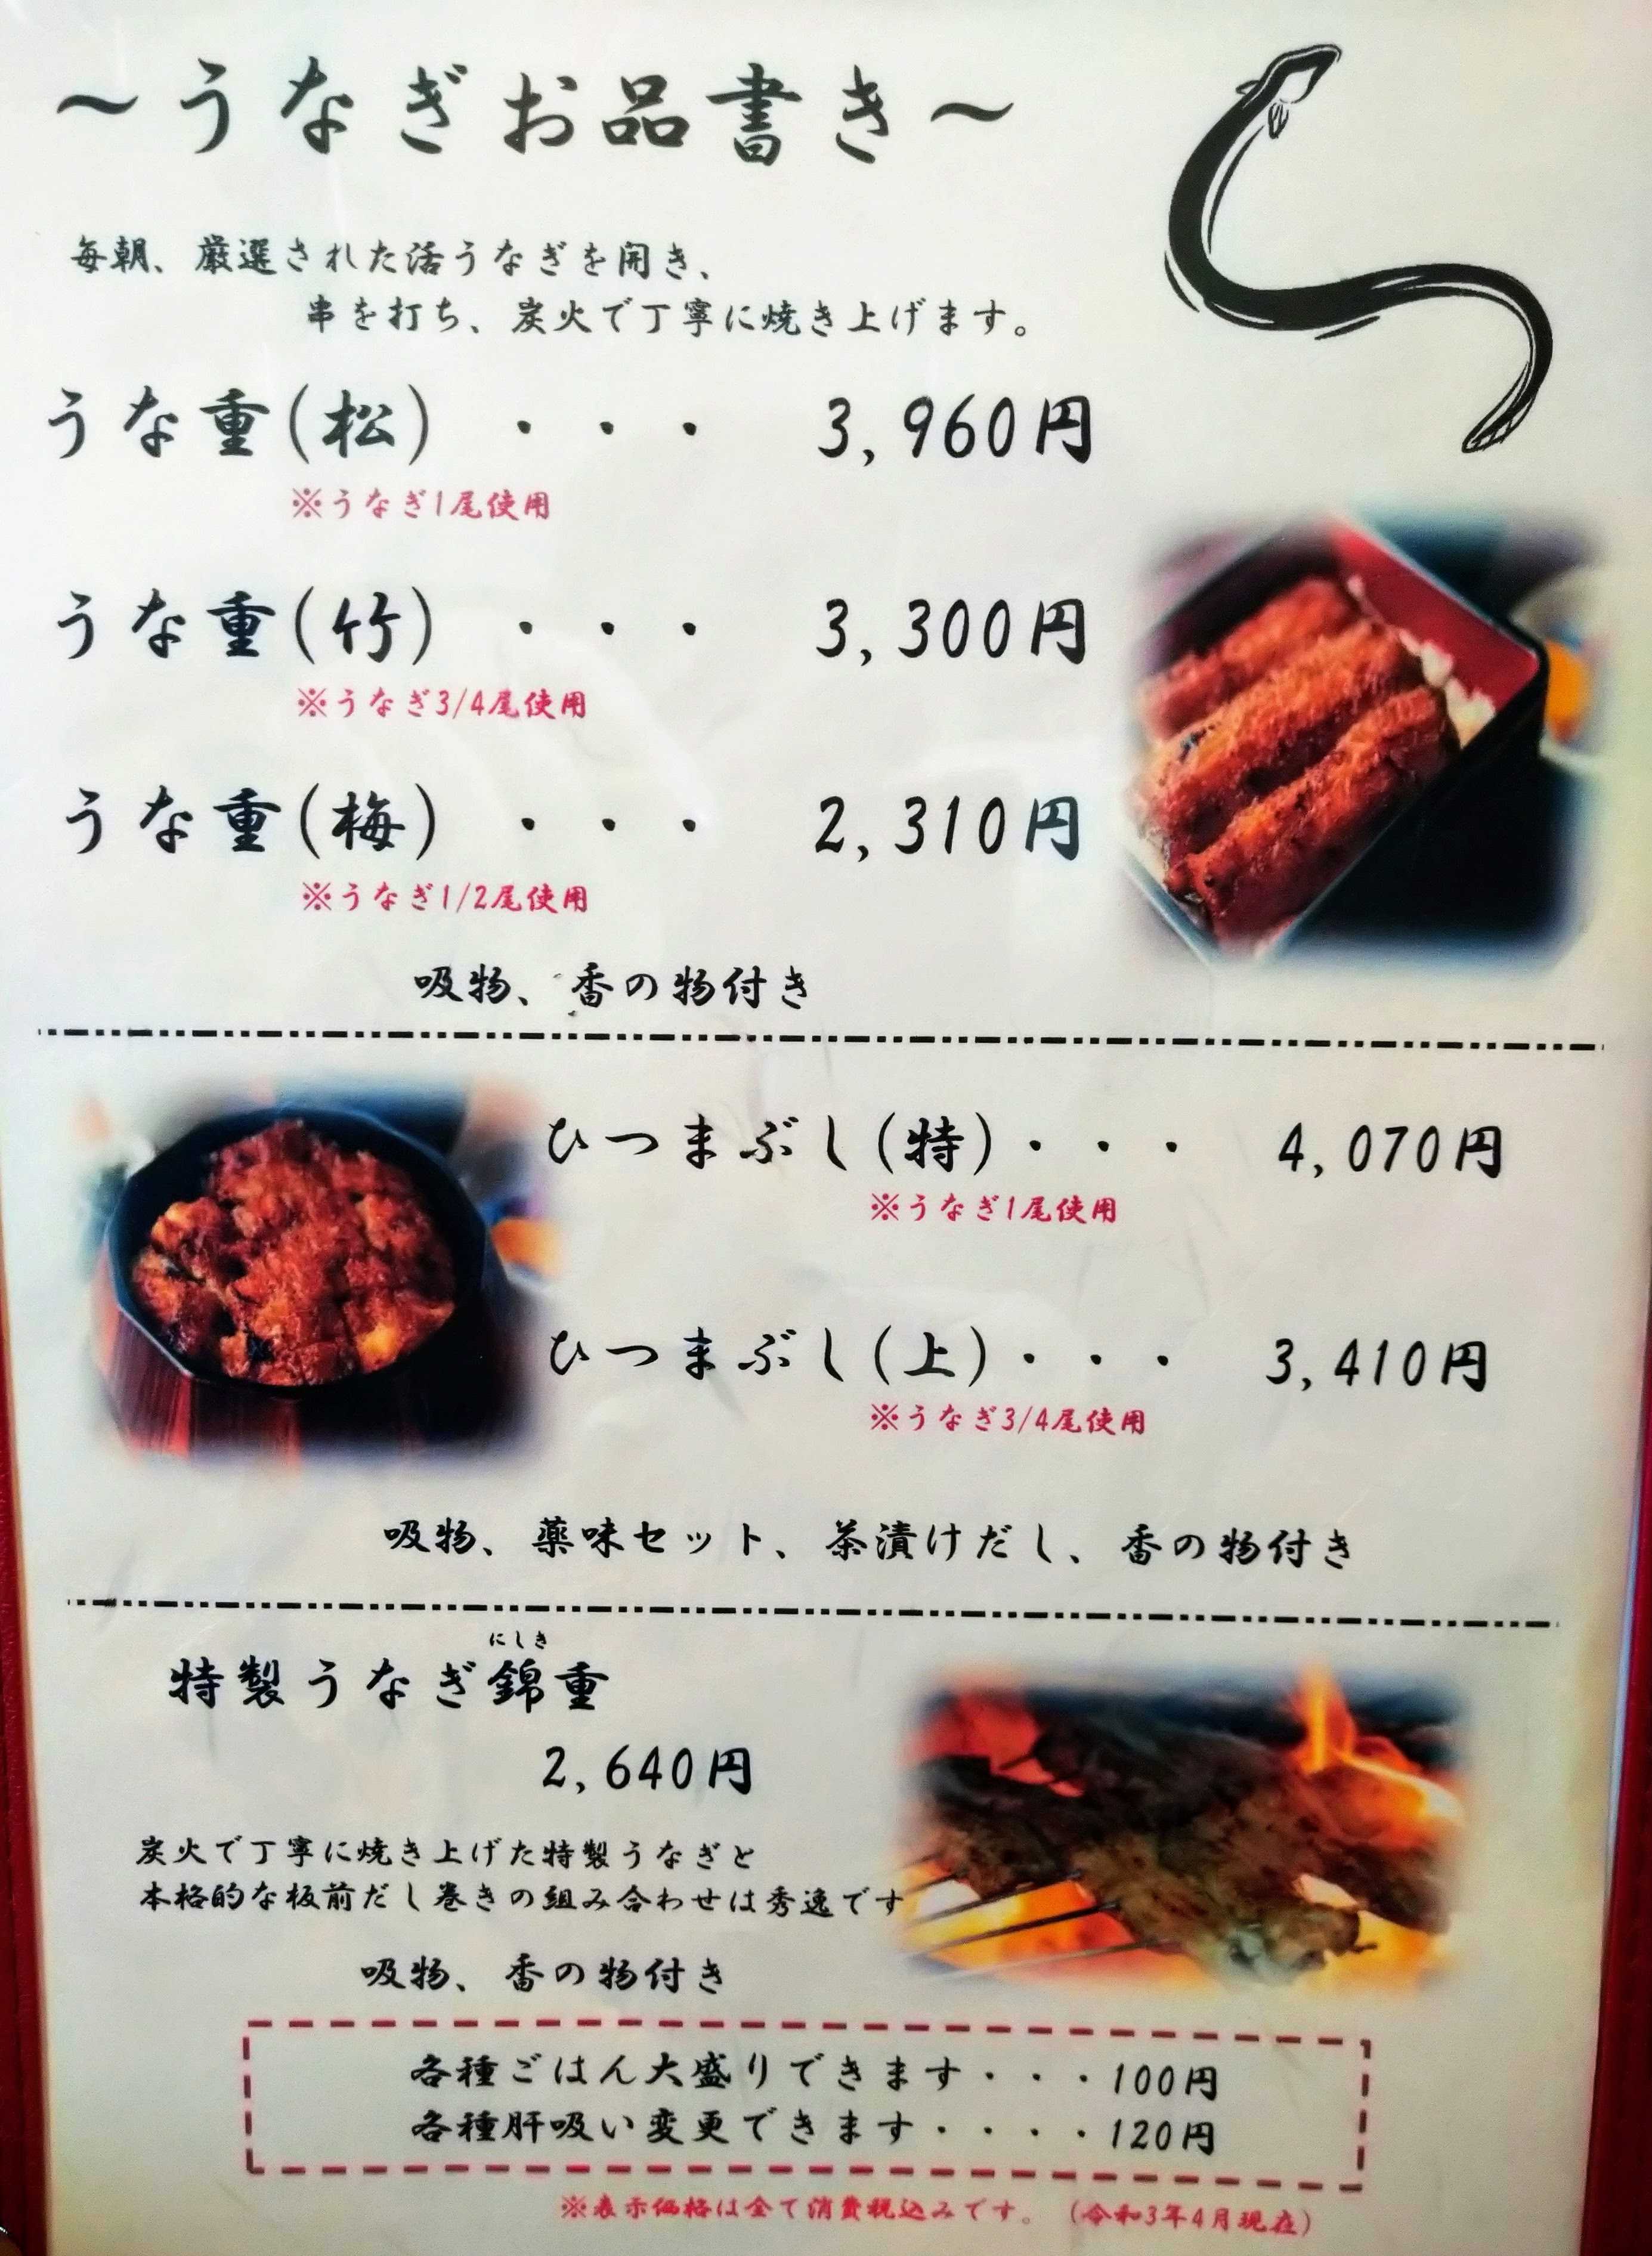 ～うなぎお品書き～
毎朝、厳選された活うなぎを開き、
串を打ち、炭火で丁寧に焼き上げます。
うな重(松) ・・・ 3,960円
※うなぎ1尾使用
うな重(竹) ・・・ 3,300円
※うなぎ3/4尾使用
うな重(梅) ・・・ 2,310円
※うなぎ1/2尾使用
吸物、香の物付き
ひつまぶし(特)・・・ 4,070円
※うなぎ1尾使用
ひつまぶし(上)・・・ 3,410円
※うなぎ3/4尾使用
吸物、薬味セット、茶漬けだし、香の物付き
にしき
特製うなぎ錦重
2,640円
炭火で丁寧に焼き上げた特製うなぎと
本格的な板前だし巻きの組み合わせは秀逸です
吸物、香の物付き
各種ごはん大盛りできます・・・100円
各種肝吸い変更できます・・・・120円
※表示価格は全て消費税込みです。（令和3年4月現在）